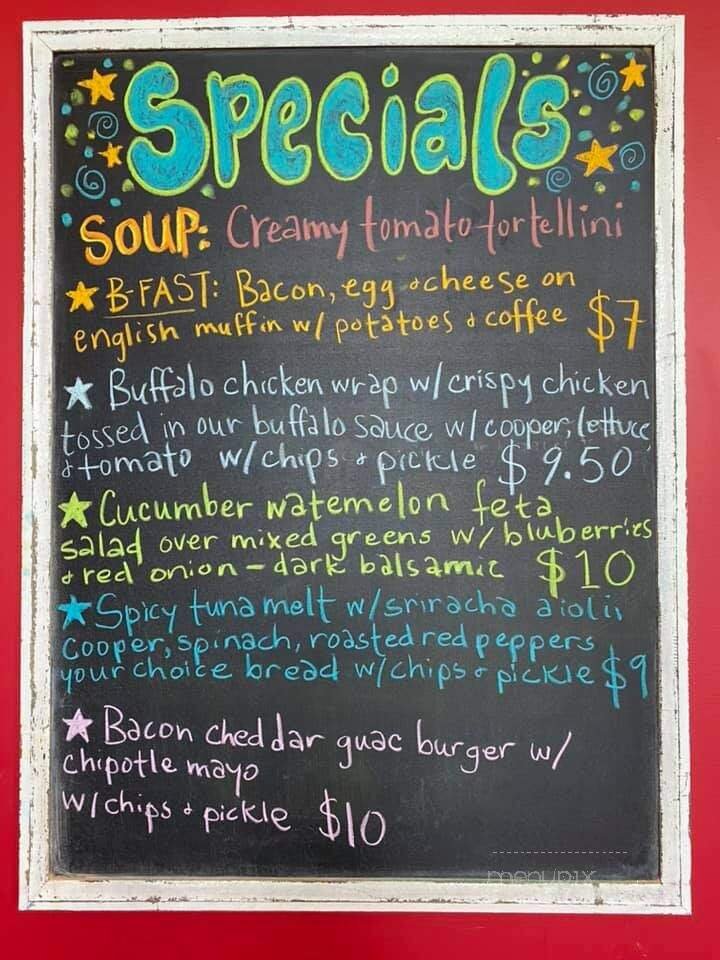 Specials
SOUP: Creamy tomato tortellini
B-FAST: Bacon, egg & cheese on
english muffin w/ potatoes & coffee $7
Buffalo chicken wrap w/ crispy chicken
tossed in our buffalo sauce w/ cooper, lettuce
& tomato w/ chips & pickle $9.50
Cucumber watemelon feta
salad over mixed greens w/ bluberries
& red onion - dark balsamic $10
Spicy tuna melt w/ sriracha aioli,
cooper, spinach, roasted red peppers
your choice bread w/ chips & pickle $9
Bacon cheddar guac burger w/
chipotle mayo
w/ chips & pickle $10
menupix